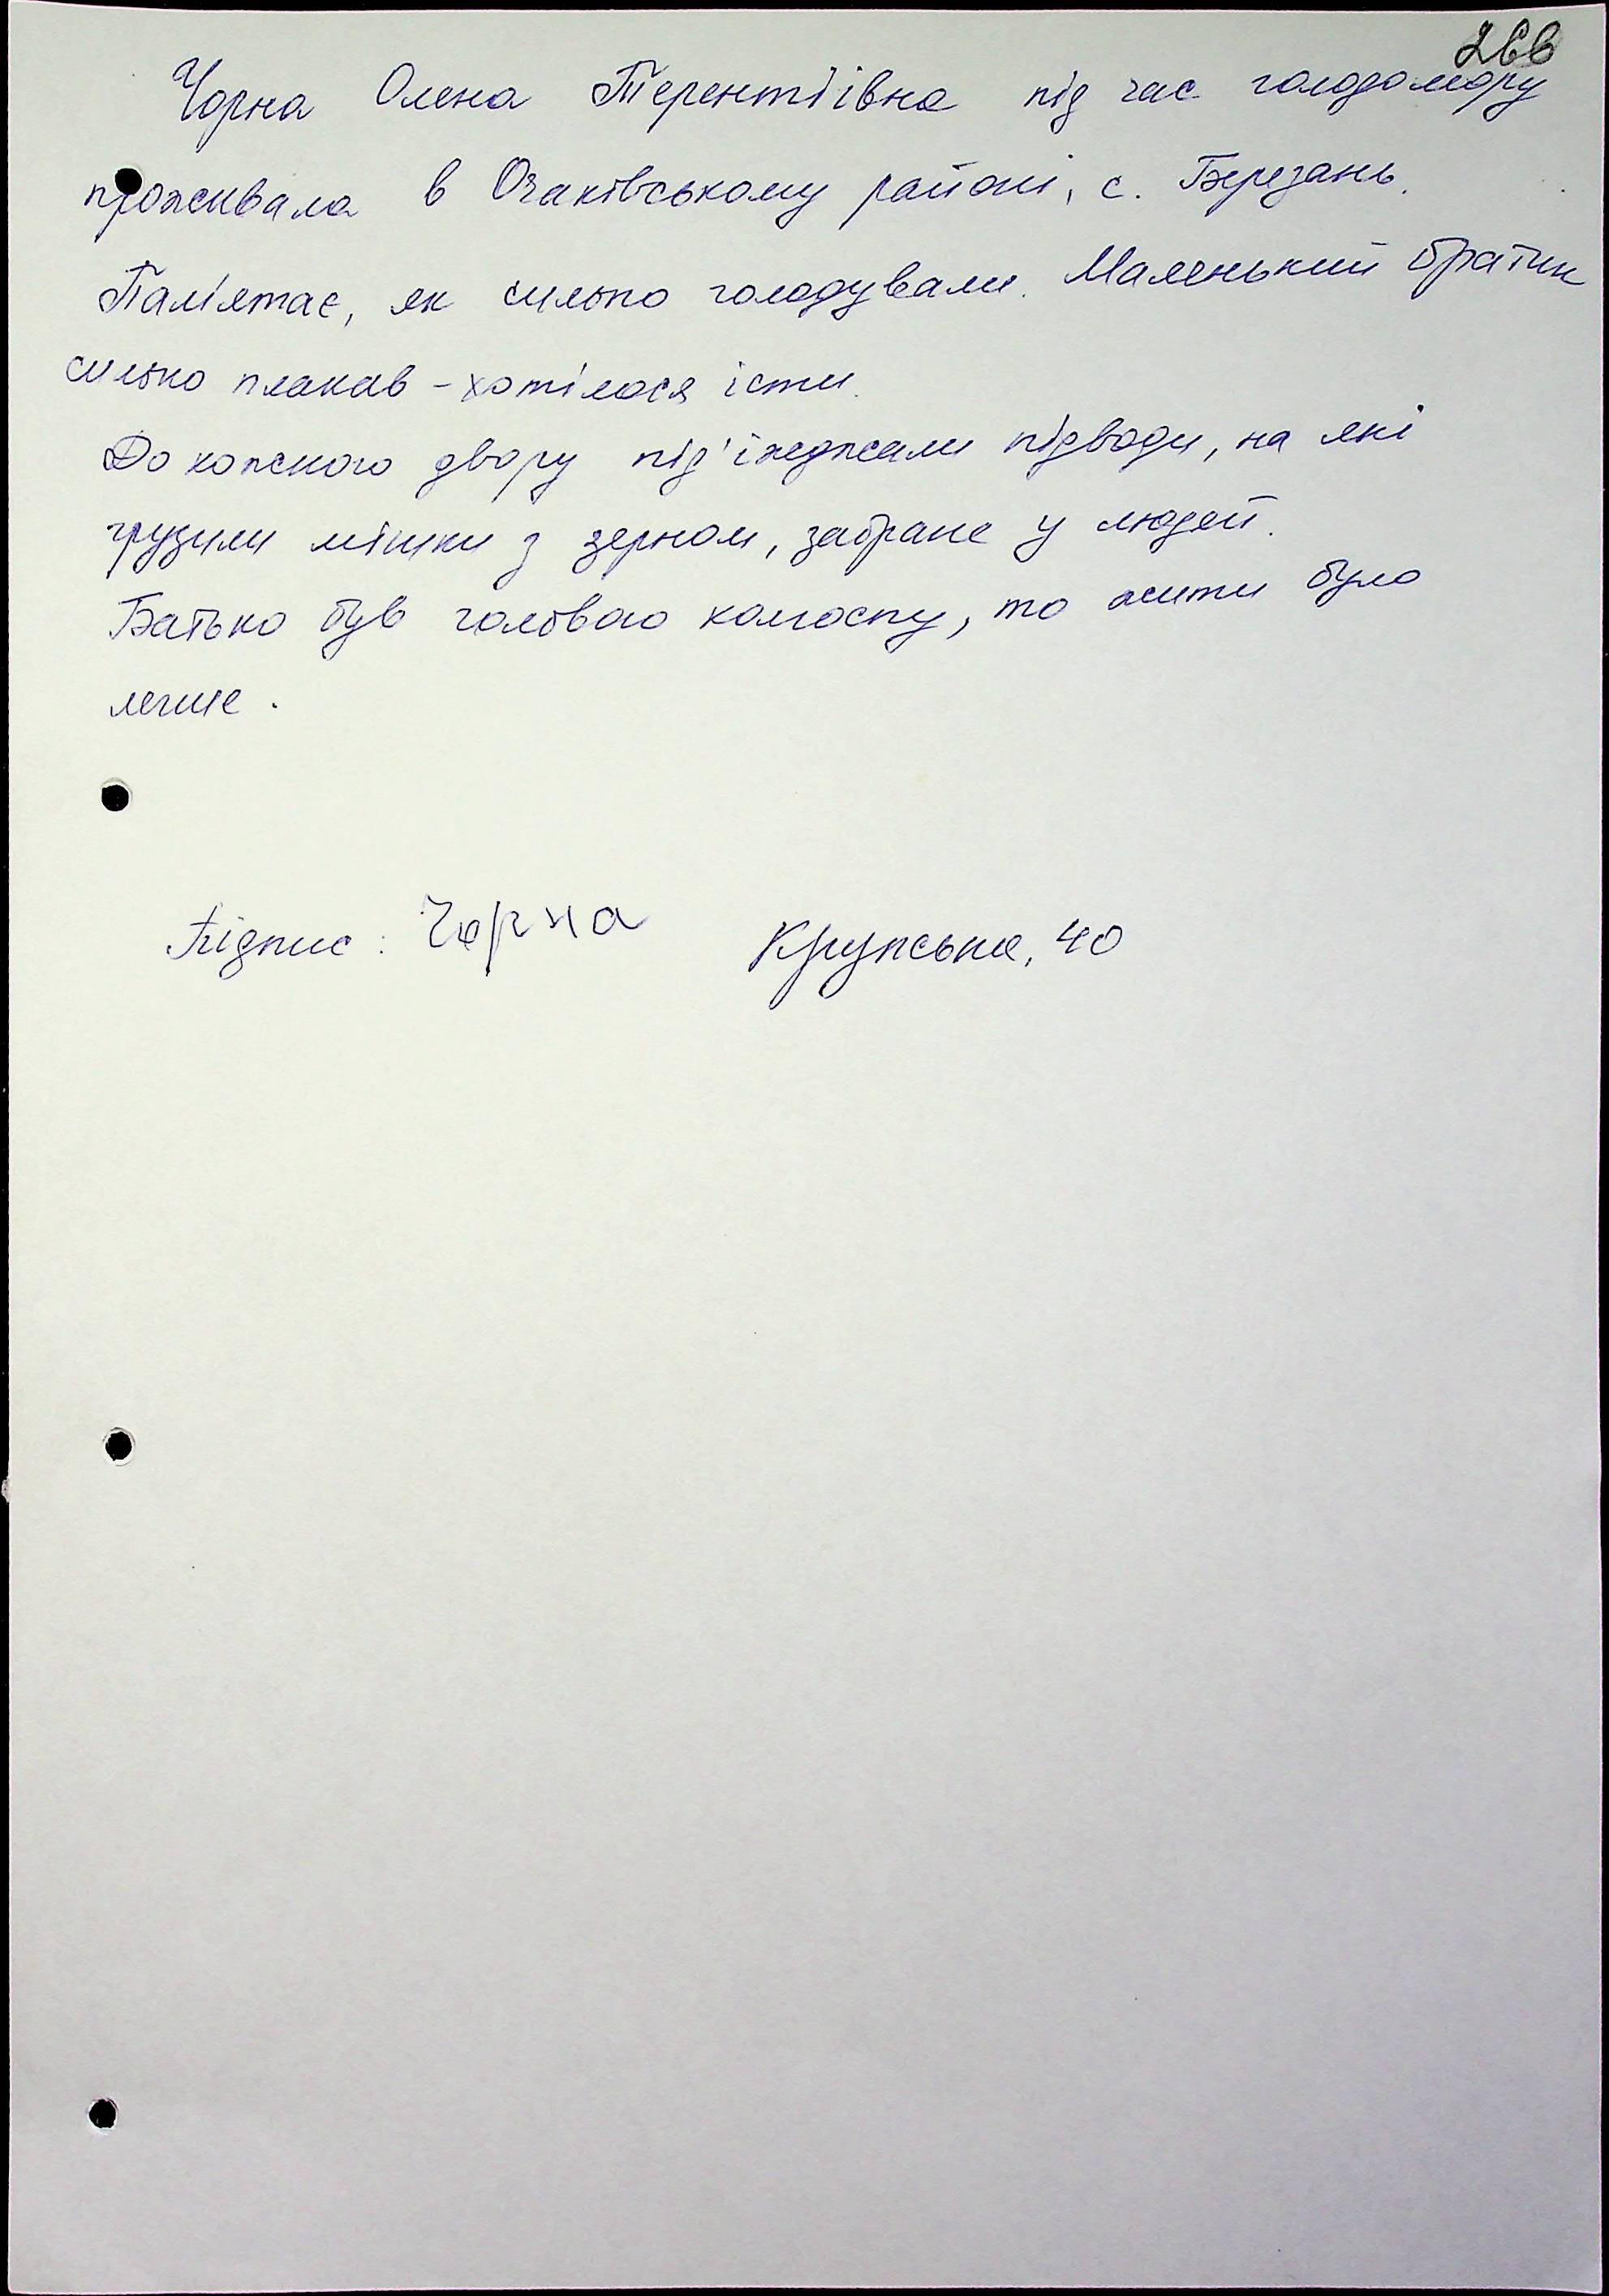 266
Чорна Олена Терентіївна під час голодомору
проживала в Очаківському районі, с. Березань.
Пам'ятає, як сильно голодували. Маленький братик
сильно плакав - хотілося їсти.
До кожного двору під'їжджали підводи, на які
грузили мішки з зерном, забране у людей.
Батько був головою колгоспу, то жити було
легше.
Підпис: Чорна Крупська, 40